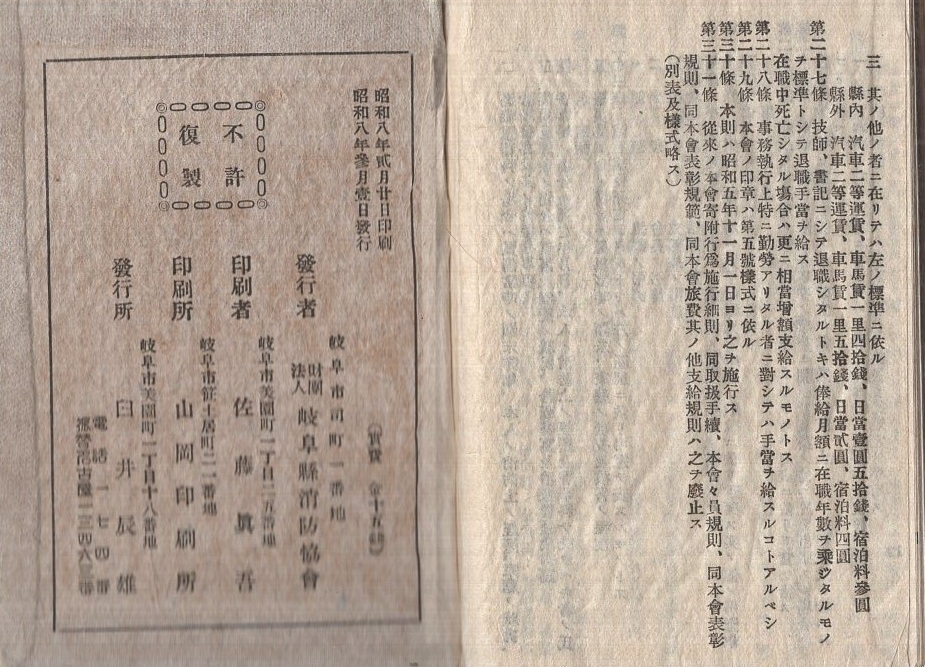 三 其ノ他ノ者ニ在リテハ左ノ標準ニ依ル
縣內 汽車二等運賃、車馬賃一里四拾錢、日當壹圓五拾錢、宿泊料參圓
縣外 汽車二等運賃、車馬賃一里五拾錢、日當貳圓、宿泊料四圓
第二十七條 技師、書記ニシテ退職シタルトキハ俸給月額ニ在職年數ヲ乘ジタルモノ
ヲ標準トシテ退職手當ヲ給ス
在職中死亡シタル塲合ハ更ニ相當增額支給スルモノトス
第二十八條 事務執行上特ニ勤勞アリタル者ニ對シテハ手當ヲ給スルコトアルベシ
第二十九條 本會ノ印章ハ第五號樣式ニ依ル
第三十條 本則ハ昭和五年十一月一日ヨリ之ヲ施行ス
第三十一條 從來ノ本會寄附行爲施行細則、同取扱手續、本會々員規則、同本會表彰
規則、同本會表彰規範、同本會旅費其ノ他支給規則ハ之ヲ廢止ス
(別表及樣式略ス)
昭和八年貳月廿日印刷
昭和八年參月壹日發行
不許
復製
(實費 金十五錢)
岐阜市司町一番地
發行者 財團法人 岐阜縣消防協會
岐阜市美園町一丁目二五番地
印刷者 佐藤眞吾
岐阜市笹土居町二一番地
印刷所 山岡印刷所
岐阜市美園町一丁目十八番地
發行所 臼井辰雄
電話一七四番
振替名古屋一三四六三番